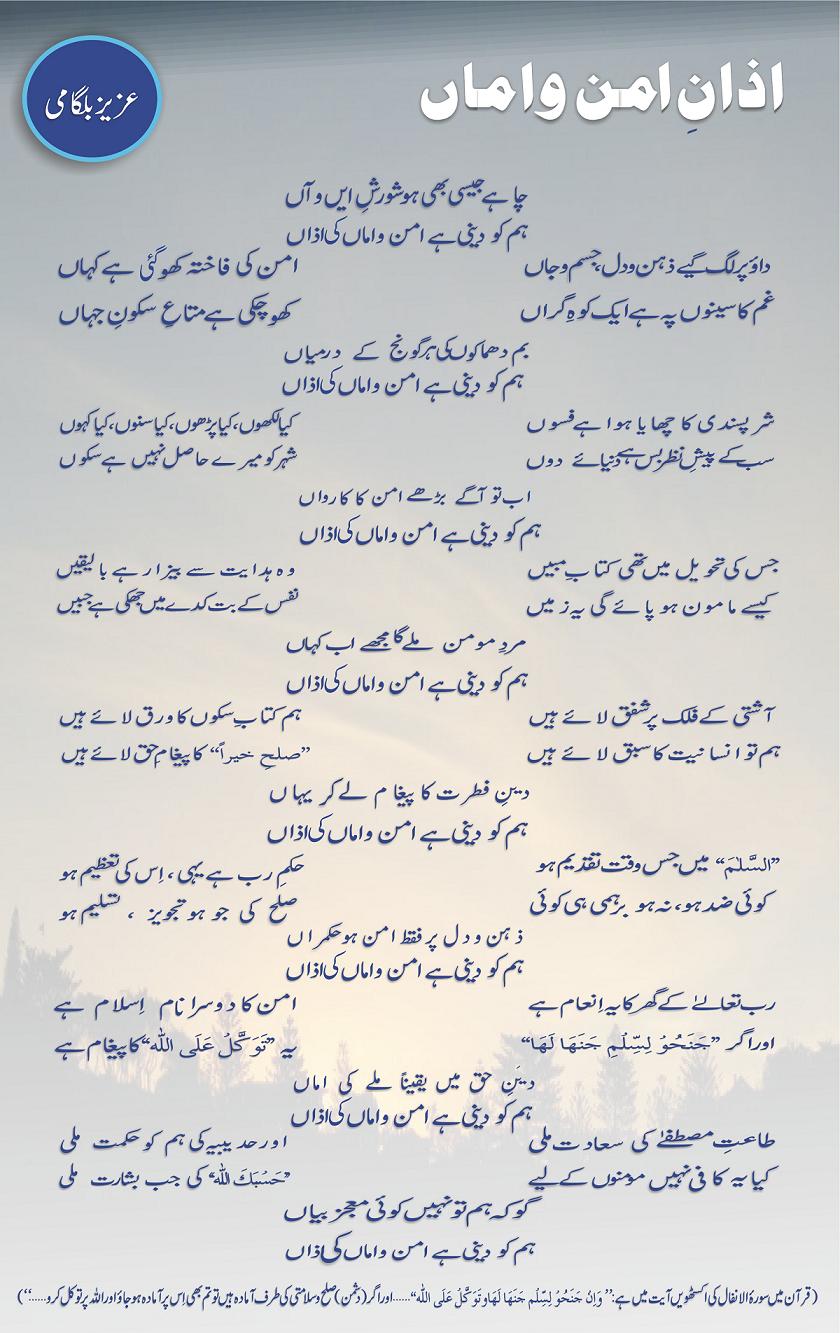 اذانِ امن و اماں
عزیز بلگامی
چاہے جیسی بھی ہو شورشِ ایں و آں
ہم کو دینی ہے امن و اماں کی اذاں
داؤ پر لگ گیے ذہن و دل، جسم و جاں امن کی فاختہ کھو گئی ہے کہاں
غم کا سینوں پہ ہے ایک کوہِ گراں کھو چکی ہے متاعِ سکونِ جہاں
بم دھماکوں کی ہر گونج کے درمیاں
ہم کو دینی ہے امن و اماں کی اذاں
شر پسندی کا چھایا ہوا ہے فسوں کیا لکھوں، کیا پڑھوں، کیا سنوں، کیا کہوں
سب کے پیشِ نظر بس ہے دنیائے دوں شہر کو میرے حاصل نہیں ہے سکوں
اب تو آگے بڑھے امن کا کارواں
ہم کو دینی ہے امن و اماں کی اذاں
جس کی تحویل میں تھی کتابِ مبیں وہ ہدایت سے بیزار ہے بالیقیں
کیسے مامون ہو پائے گی یہ زمیں نفس کے بت کدے میں جھکی ہے جبیں
مردِ مومن ملے گا مجھے اب کہاں
ہم کو دینی ہے امن و اماں کی اذاں
آشتی کے فلک پر شفق لائے ہیں ہم کتابِ سکوں کا ورق لائے ہیں
ہم تو انسانیت کا سبق لائے ہیں ”صلحِ خیراً“ کا پیغامِ حق لائے ہیں
دینِ فطرت کا پیغام لے کر یہاں
ہم کو دینی ہے امن و اماں کی اذاں
”السَّلٰمَ“ میں جس وقت تقدیم ہو حکمِ رب ہے یہی، اِس کی تعظیم ہو
کوئی ضد ہو، نہ ہو برہمی ہی کوئی صلح کی جو ہو تجویز، تسلیم ہو
ذہن و دل پر فقط امن ہو حکمراں
ہم کو دینی ہے امن و اماں کی اذاں
رب تعالےٰ کے گھر کا یہ اِنعام ہے امن کا دوسرا نام اِسلام ہے
اور اگر ”جَنَحُوْ لِسِّلْمِ جَنَهَا لَهَا“ یہ ”تَوَکَّلْ عَلَى اللّٰه“ کا پیغام ہے
دینِ حق میں یقیناً ملے کی اماں
ہم کو دینی ہے امن و اماں کی اذاں
طاعتِ مصطفےٰ کی سعادت ملی اور حدیبیہ کی ہم کو حکمت ملی
کیا یہ کافی نہیں مومنوں کے لیے ”حَسْبَكَ اللّٰه“ کی جب بشارت ملی
گو کہ ہم تو نہیں کوئی معجز بیاں
ہم کو دینی ہے امن و اماں کی اذاں
(قرآن میں سورۂ الانفال کی اکسٹھویں آیت میں ہے: ”وَاِنْ جَنَحُوْ لِسِّلْم جَنَهَا لَهَا وَتَوَكَّلْ عَلَى اللّٰه“......اور اگر (دشمن) صلح و سلامتی کی طرف آمادہ ہیں تو تم بھی اِس پر آمادہ ہو جاؤ اور اللہ پر توکل کرو......“)